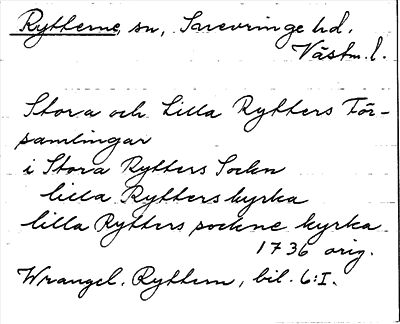 Rytterne, sn, Snevringe hd.
Västm. l.
Stora och Lilla Rytters För-
samlingar
i Stora Rytters Sockn
lilla Rytters kyrka
lilla Rytters sockne kyrka
1736 orig.
Wrangel. Ryttern, bil. 6:I.